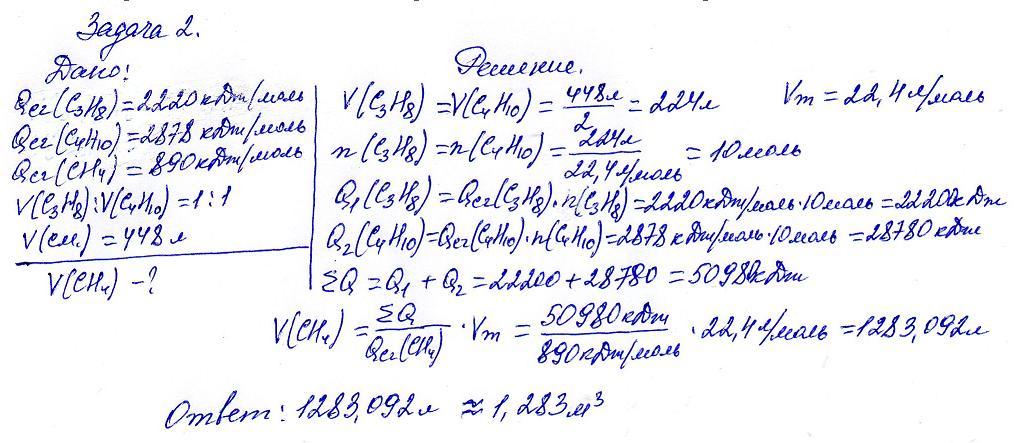 Задача 2.
Дано:
Qсг(C₃H₈) = 2220 кДж/моль
Qсг(C₄H₁₀) = 2878 кДж/моль
Qсг(CH₄) = 890 кДж/моль
V(C₃H₈):V(C₄H₁₀) = 1:1
V(см.) = 448 л
V(CH₄) - ?
Решение.
V(C₃H₈) = V(C₄H₁₀) = 448л/2 = 224л Vm = 22,4 л/моль
n(C₃H₈) = n(C₄H₁₀) = 224л/22,4л/моль = 10моль
Q₁(C₃H₈) = Qсг(C₃H₈)·n(C₃H₈) = 2220кДж/моль·10моль = 22200кДж
Q₂(C₄H₁₀) = Qсг(C₄H₁₀)·n(C₄H₁₀) = 2878 кДж/моль·10моль = 28780 кДж
ΣQ = Q₁ + Q₂ = 22200 + 28780 = 50980кДж
V(CH₄) = ΣQ/Qсг(CH₄) · Vm = 50980кДж/890кДж/моль · 22,4 л/моль = 1283,092л
Ответ: 1283,092л ≈ 1,283м³